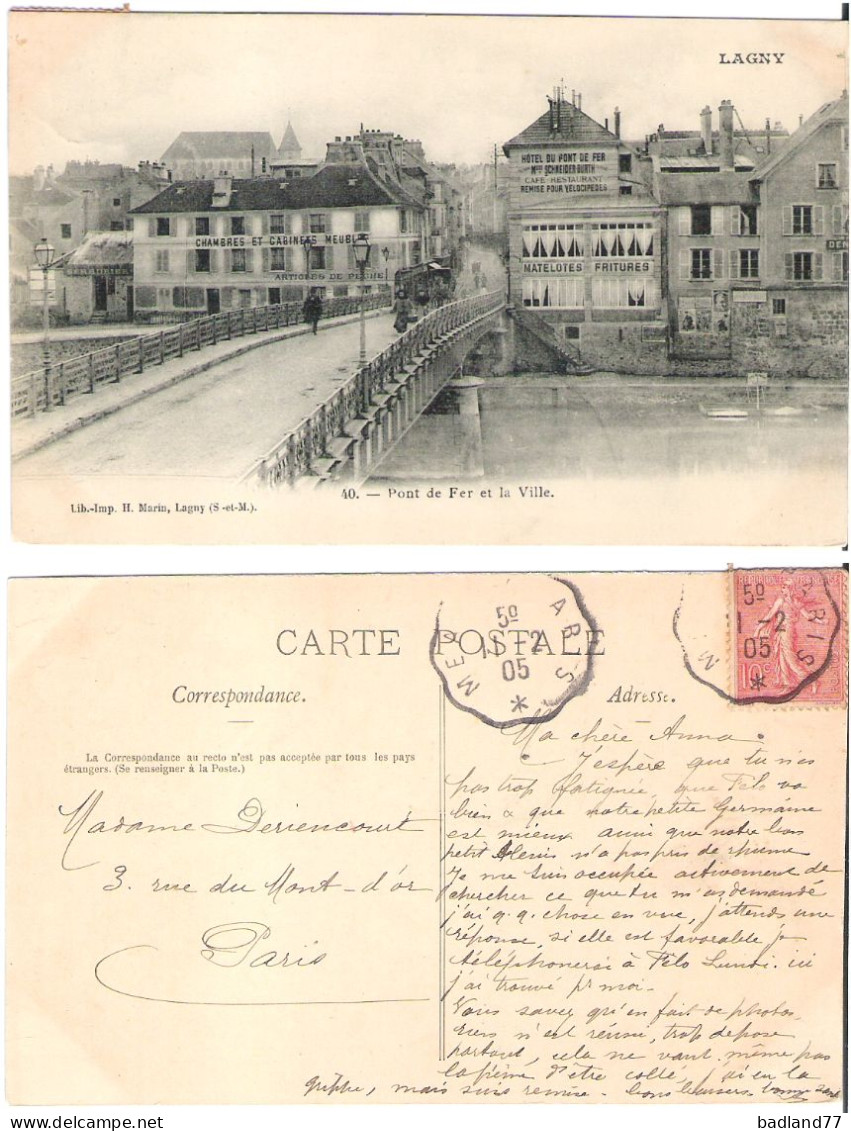 LAGNY
HÔTEL DU PONT DE FER
Mme SCHNEIDER BURTH
CAFÉ RESTAURANT
REMISE POUR VÉLOCIPÈDES
CHAMBRES ET CABINETS MEUBLÉS
MATELOTES FRITURES
SERRURERIE
ARTICLES DE PÊCHE
40. — Pont de Fer et la Ville.
Lib.-Imp. H. Marin, Lagny (S-et-M.).
CARTE POSTALE
5e
11-2
05
PARIS
5e
11-2
05
10c
Correspondance.
Adresse.
La Correspondance au recto n'est pas acceptée par tous les pays
étrangers. (Se renseigner à la Poste.)
Madame Deriencourt
3. rue du Mont-d'or
Paris
Ma chère Anna.
J'espère que tu n'es
pas trop fatiguée, que Félo va
bien & que notre petite Germaine
est mieux ainsi que notre bon
petit Alexis n'a pas pris de rhume
Je me suis occupée activement de
chercher ce que tu m'as demandé
j'ai q.q. chose en vue, j'attends une
réponse, si elle est favorable je
téléphonerai à Félo Lundi. ici
j'ai trouvé pr moi-
Vous savez qu'en fait de photos
rien n'est réussi, trop de pose
partout, cela ne vaut même pas
la peine d'être collé, j'ai eu la
grippe, mais suis remise - bons baisers
badland77